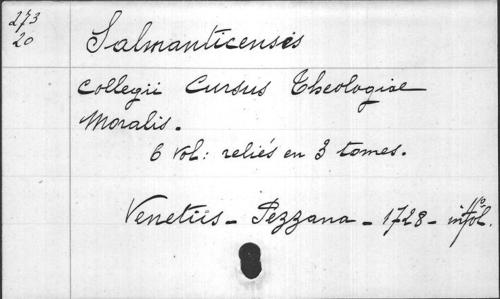 273
20
Salmanticensis
Collegii Cursus Theologiae
Moralis.
6 vol: reliés en 3 tomes.
Venetiis - Pezzana - 1728 - infol.